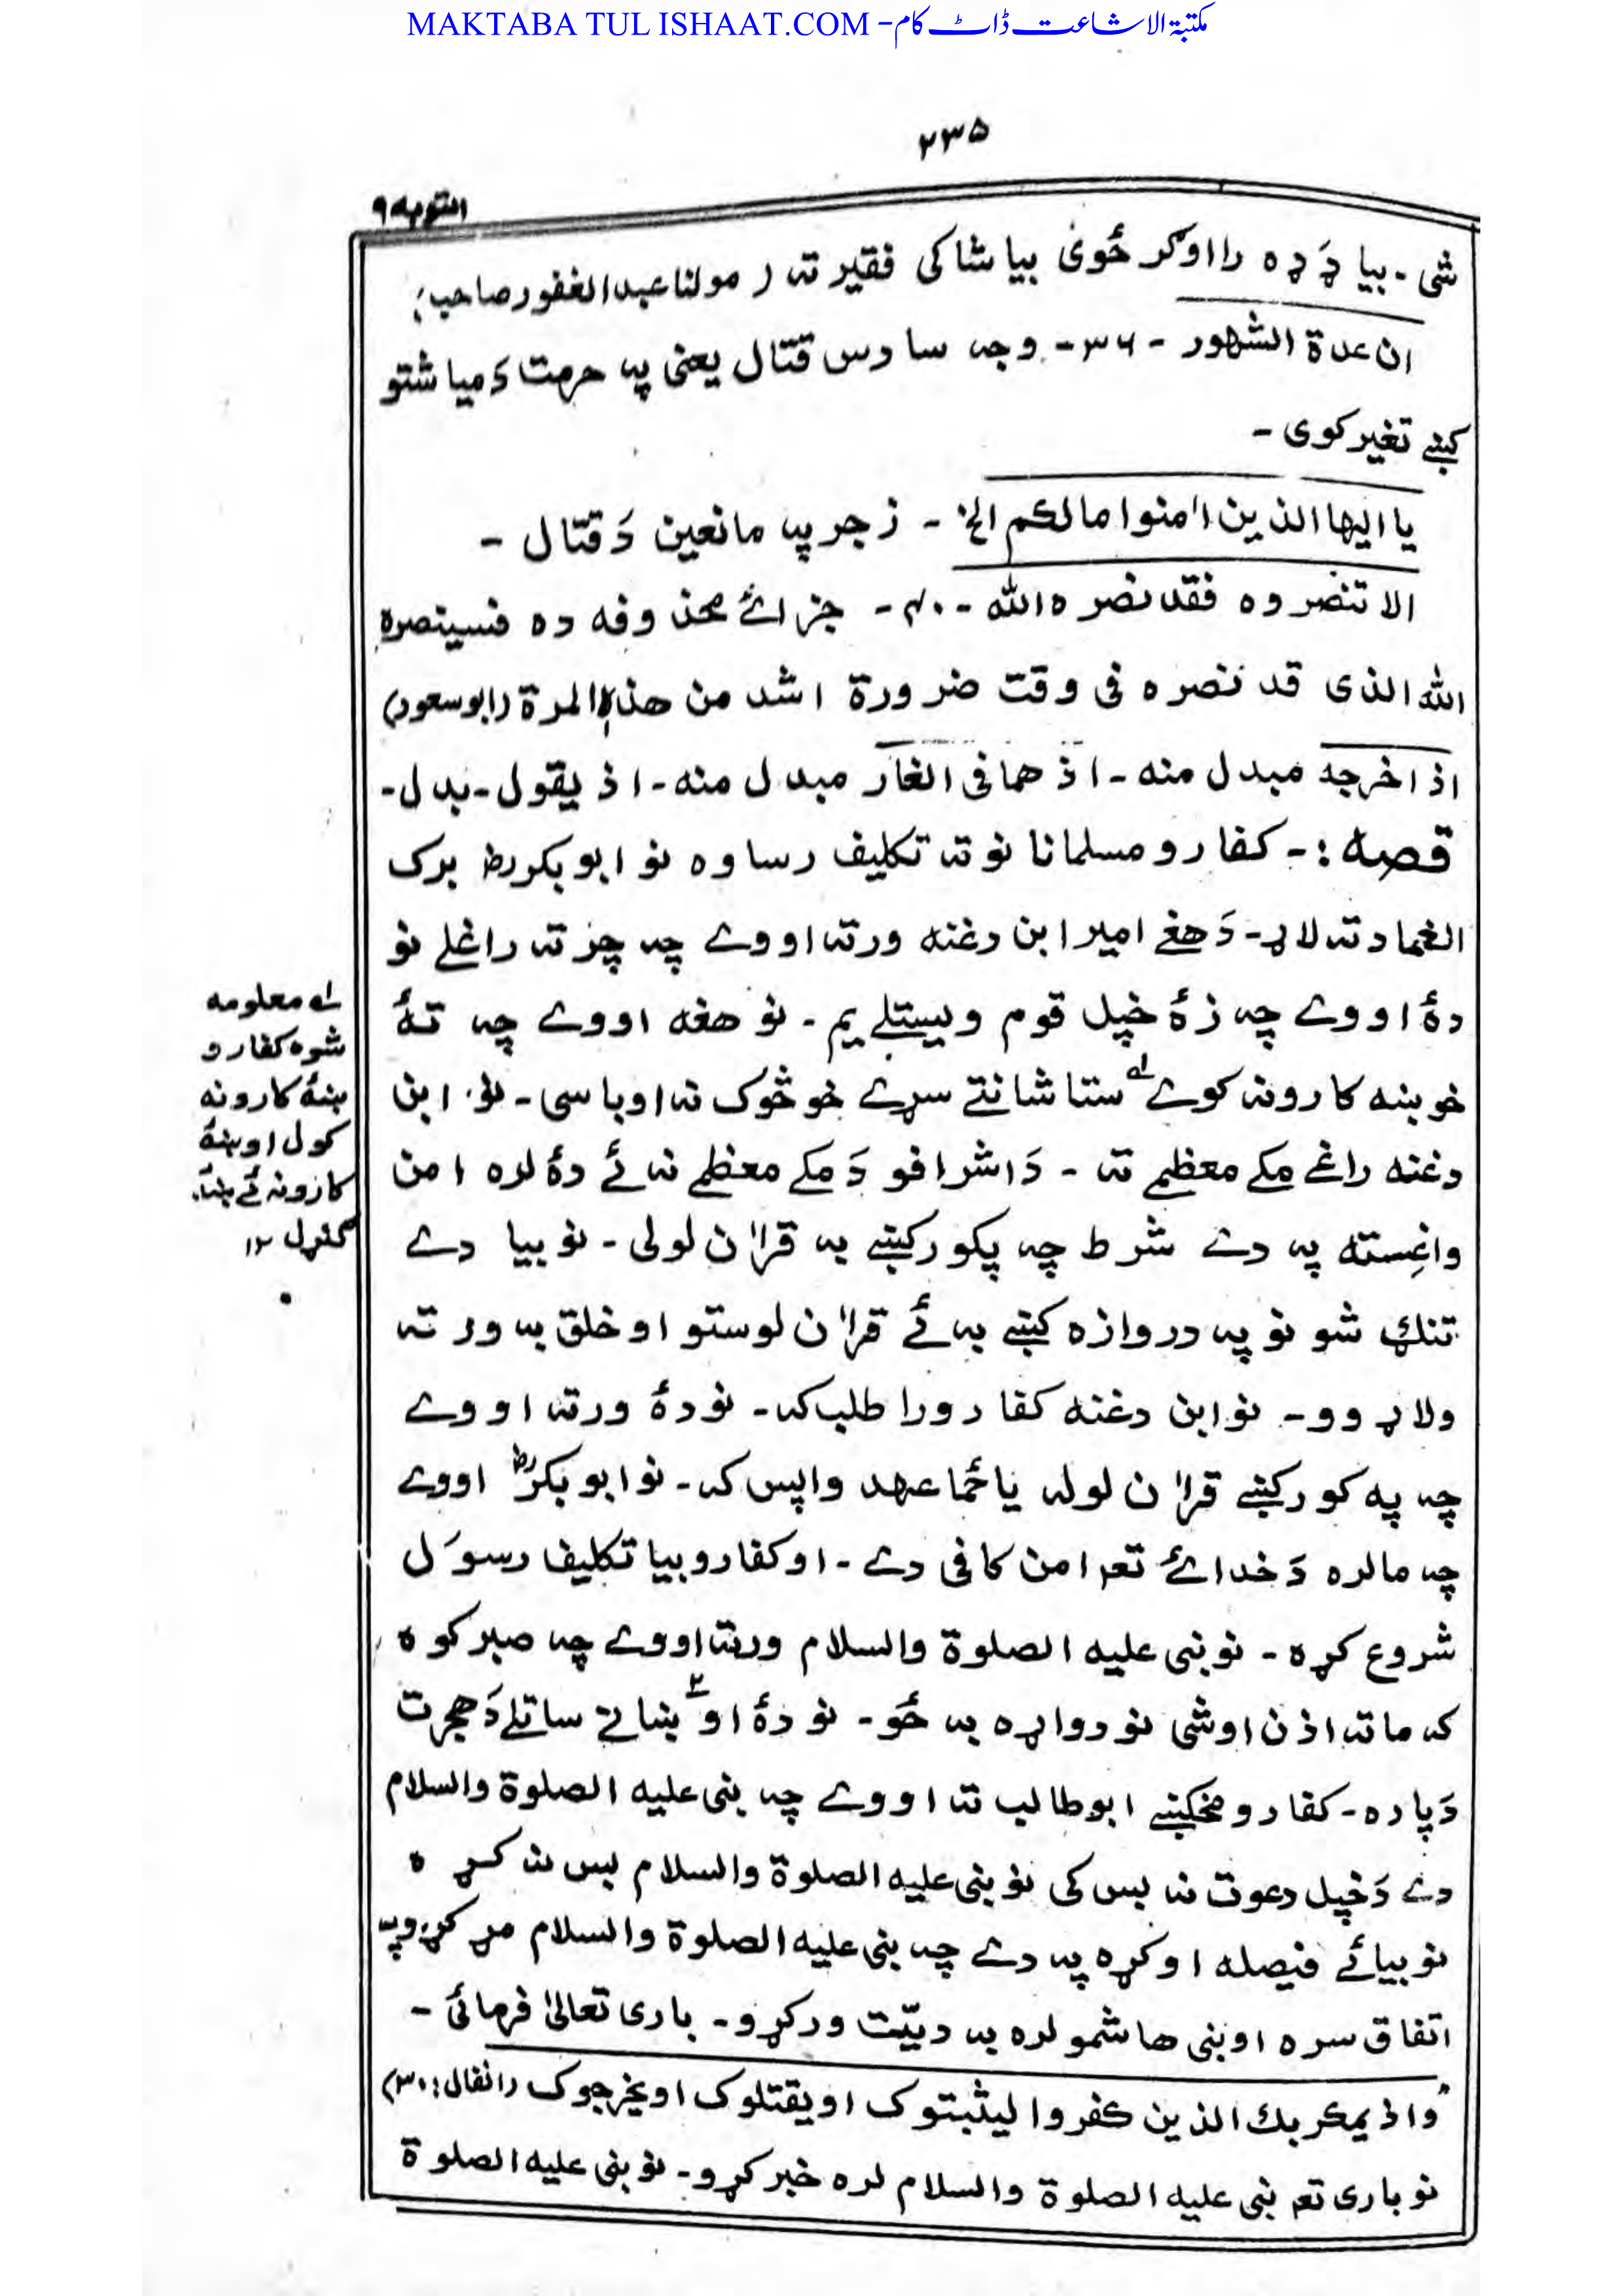 MAKTABA TUL ISHAAT.COM -مکتبة الاشاعت ڈاٹ کام
۲۳۵
التوبه ۹
شی - بیا ډډه را اوګر ځوی بیا شاکی فقیر ته ر مولنا عبد الغفور صاحب؛
ان عدة الشهور - ۳۶ - وجه سادس قتال یعنی په حرمت د میاشتو
کښے تغیر کوی -
یا ایها الذین اٰمنوا مالکم الخ - زجر په مانعین دَ قتال -
الا تنصروه فقد نصره الله - ۴۰ - جزائے محذوفه ده فسینصره
الله الذی قد نصره فی وقت ضرورة اشد من هذه المرة (ابو سعود)
اذ اخرجه مبدل منه - اذ هما فی الغار مبدل منه - اذ یقول - بدل -
قصه :- کفارو مسلمانانو ته تکلیف رساوه نو ابو بکر رض برک
الغماد ته لاړ - دَ هغے امیر ابن دغنه ورته اووے چه چرته راغلے نو
دهٔ اووے چه زهٔ خپل قوم ویستلے یم - نو هغه اووے چه تهٔ
خو ښه کارونه کوے لہ ستا شانتے سړے خو څوک نه اوباسی - نو ابن
دغنه راغے مکے معظمے ته - دَ اشرافو دَ مکے معظمے نه ئے دهٔ لره امن
واغِسته په دے شرط چه پکور کښے به قراٰن لولی - نو بیا دے
تنګ شو نو په دروازه کښے به ئے قراٰن لوستو او خلق به ورته
ولاړ وو - نو ابن دغنه کفارو را طلب که - نو دهٔ ورته اووے
چه په کور کښے قراٰن لوله یا ځما عهد واپس که - نو ابو بکر رض اووے
چه مالره دَ خدائے تعہ امن کافی دے - او کفارو بیا تکلیف رسوَل
شروع کړه - نو نبی علیه الصلوة والسلام ورته اووے چه صبر کوه،
که ماته اذن اوشی نو دواړه به ځو - نو دهٔ اوٴښانے ساتلے دَ هجرت
دَپاره - کفارو مخکښے ابو طالب ته اووے چه نبی علیه الصلوة والسلام
دے دَ خپل دعوت نه بس کی نو نبی علیه الصلوة والسلام بس نه کړه
نو بیائے فیصله اوکړه په دے چه نبی علیه الصلوة والسلام مړ کړو په
اتفاق سره او بنی هاشمو لره به دیّت ورکړو - باری تعالیٰ فرمائی -
"واذ یمکر بك الذین کفروا لیثبتوک او یقتلوک او یخرجوک (انفال: ۳۰)
نو باری تعہ نبی علیه الصلوة والسلام لره خبر کړو - نو نبی علیه الصلوة
لہ معلومه
شوه کفارو
ښهٔ کارونه
کول او ښهٔ
کارونه ئے ښه
ګنړل ۱۲